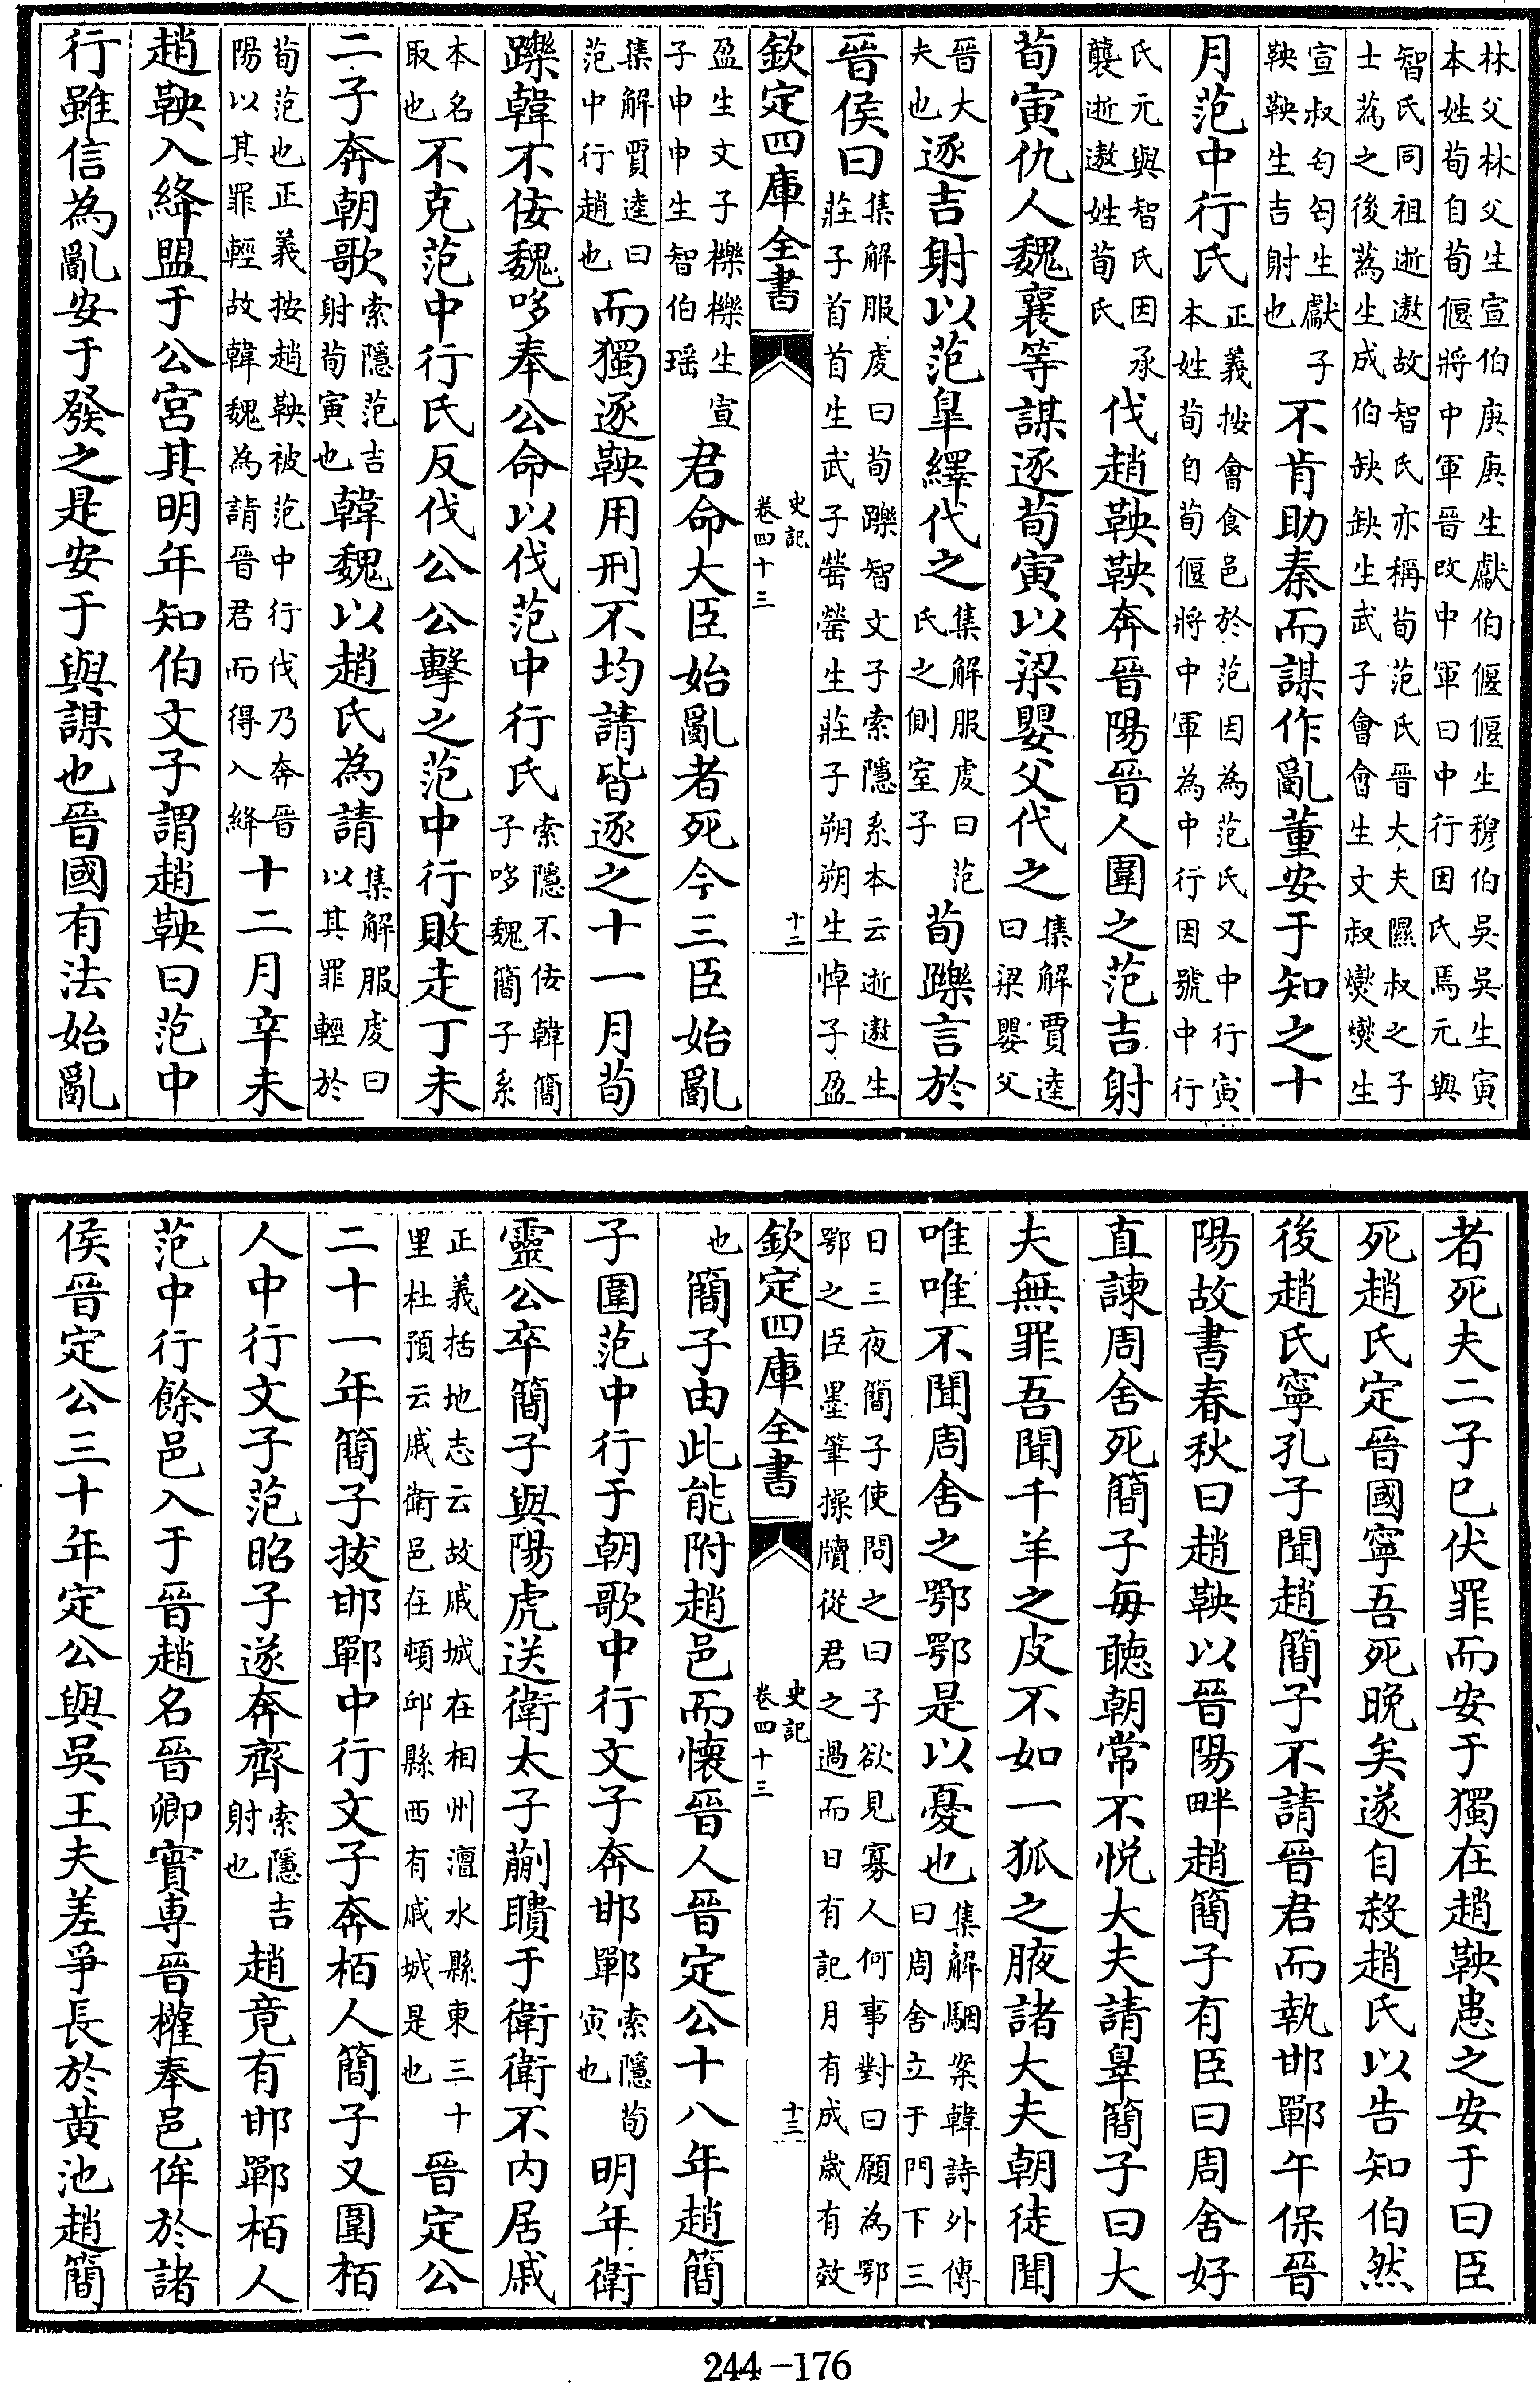 林父林父生宣伯庚庚生獻伯偃偃生穆伯吳吳生寅
本姓荀自荀偃將中軍晉改中軍曰中行因氏焉元與
智氏同祖逝遨故智氏亦稱荀范氏晉大夫隰叔之子
士蒍之後蒍生成伯缺缺生武子會會生文叔燮燮生
宣叔匄匄生獻子
鞅鞅生吉射也
不肯助秦而謀作亂董安于知之十
月范中行氏
正義按會食邑於范因為范氏又中行寅
本姓荀自荀偃將中軍為中行因號中行
氏元與智氏因承
襲逝遨姓荀氏
伐趙鞅鞅奔晉陽晉人圍之范吉射
荀寅仇人魏襄等謀逐荀寅以梁嬰父代之
集解賈逵
曰梁嬰父
晉大
夫也
逐吉射以范臯繹代之
集解服虔曰范
氏之側室子
荀躒言於
晉侯曰
集解服虔曰荀躒智文子索隱系本云逝遨生
莊子首首生武子罃罃生莊子朔朔生悼子盈
欽定四庫全書
史記
卷四十三
十二
盈生文子櫟櫟生宣
子申申生智伯瑤
君命大臣始亂者死今三臣始亂
集解賈逵曰
范中行趙也
而獨逐鞅用刑不均請皆逐之十一月荀
躒韓不佞魏哆奉公命以伐范中行氏
索隱不佞韓簡
子哆魏簡子系
本名
取也
不克范中行氏反伐公公擊之范中行敗走丁未
二子奔朝歌
索隱范吉
射荀寅也
韓魏以趙氏為請
集解服虔曰
以其罪輕於
荀范也正義按趙鞅被范中行伐乃奔晉
陽以其罪輕故韓魏為請晉君而得入絳
十二月辛未
趙鞅入絳盟于公宮其明年知伯文子謂趙鞅曰范中
行雖信為亂安于發之是安于與謀也晉國有法始亂
者死夫二子已伏罪而安于獨在趙鞅患之安于曰臣
死趙氏定晉國寧吾死晚矣遂自殺趙氏以告知伯然
後趙氏寧孔子聞趙簡子不請晉君而執邯鄲午保晉
陽故書春秋曰趙鞅以晉陽畔趙簡子有臣曰周舍好
直諫周舍死簡子每聽朝常不悅大夫請辠簡子曰大
夫無罪吾聞千羊之皮不如一狐之腋諸大夫朝徒聞
唯唯不聞周舍之鄂鄂是以憂也
集解駰案韓詩外傳
曰周舍立于門下三
日三夜簡子使問之曰子欲見寡人何事對曰願為鄂
鄂之臣墨筆操牘從君之過而日有記月有成歲有效
欽定四庫全書
史記
卷四十三
十三
也
簡子由此能附趙邑而懷晉人晉定公十八年趙簡
子圍范中行于朝歌中行文子奔邯鄲
索隱荀
寅也
明年衛
靈公卒簡子與陽虎送衛太子蒯聵于衛衛不內居戚
正義括地志云故戚城在相州澶水縣東三十
里杜預云戚衛邑在頓邱縣西有戚城是也
晉定公
二十一年簡子拔邯鄲中行文子奔栢人簡子又圍栢
人中行文子范昭子遂奔齊
索隱吉
射也
趙竟有邯鄲栢人
范中行餘邑入于晉趙名晉卿實專晉權奉邑侔於諸
侯晉定公三十年定公與吳王夫差爭長於黃池趙簡
244-176